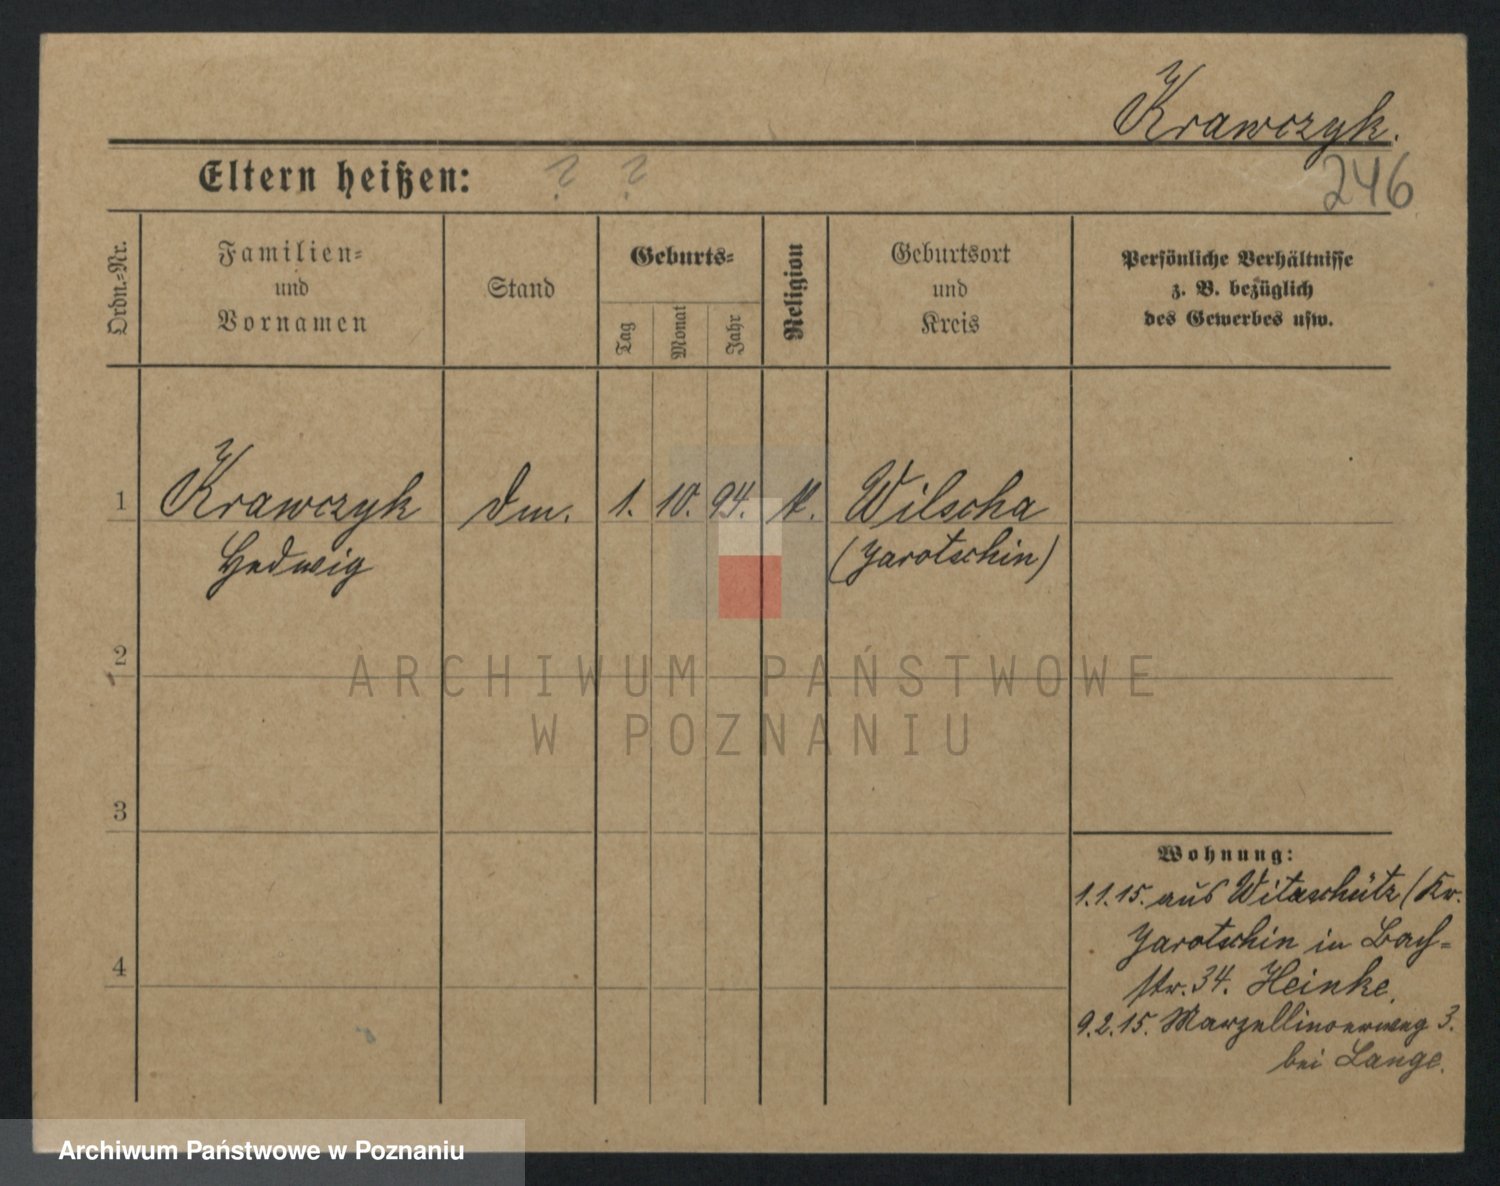 Krawczyk.
Eltern heißen: ? ?
246
Ordn.-Nr.
Familien-
und
Vornamen
Stand
Geburts-
Tag
Monat
Jahr
Religion
Geburtsort
und
Kreis
Persönliche Verhältnisse
z. B. bezüglich
des Gewerbes usw.
1 Krawczyk dm. 1. 10. 94. k. Wilscha
Hedwig (Jarotschin)
2
ARCHIWUM PAŃSTWOWE
W POZNANIU
3
Wohnung:
1.1.15. aus Witaschütz (Kr.
Jarotschin in Bach=
4
str. 34. Heinke.
9.2.15. Marzellinoerweg 3.
bei Lange.
Archiwum Państwowe w Poznaniu